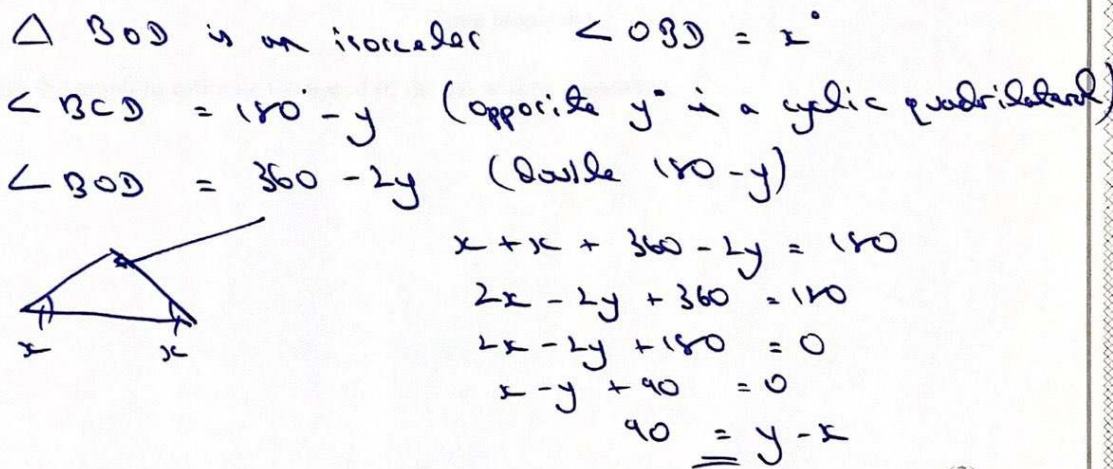 △ BOD is an isosceles ∠OBD = x°
∠BCD = 180° - y (opposite y° in a cyclic quadrilateral)
∠BOD = 360 - 2y (double 180 - y)
x + x + 360 - 2y = 180
2x - 2y + 360 = 180
2x - 2y + 180 = 0
x - y + 90 = 0
90 = y - x
x x